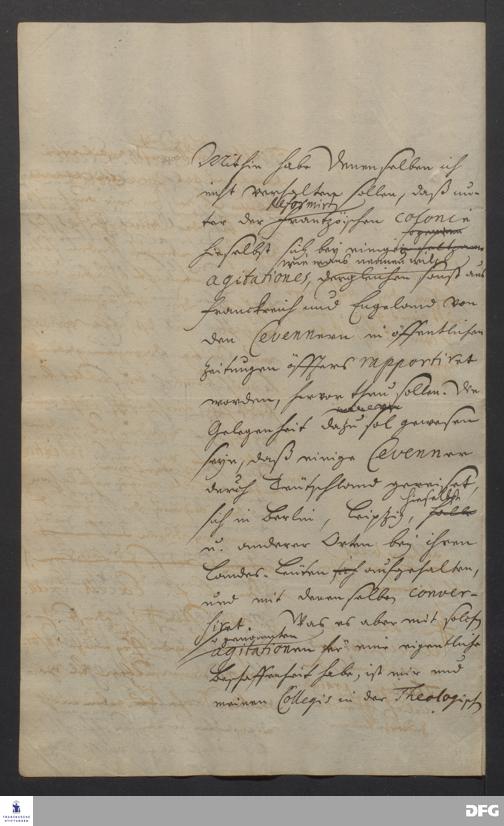 Mithin habe Denenselben ich
nicht verhalten sollen, daß un-
Reformirt
ter der Frantzösischen Colonie
hieselbst sich bey einigen
wie mans nennen will
agitationes, dergleichen sonst aus
Franckreich und Engeland von
den Cevennern in öffentlichen
Zeitungen öffters rapportiret
worden, hervor thun sollen. Die
Gelegenheit dazu sol gewesen
seyn, daß einige Cevenner
durch Teutschland gereiset,
hieselbst
sich in Berlin, Leipzig,
u. anderer Orten bey ihren
Landes-Leuten aufgehalten,
und mit denenselben conver-
siret. Was es aber mit solch
so genannten
agitationen für eine eigentliche
Beschaffenheit habe, ist mir und
meinen Collegis in der Theologisch
FRANCKESCHE STIFTUNGEN
DFG